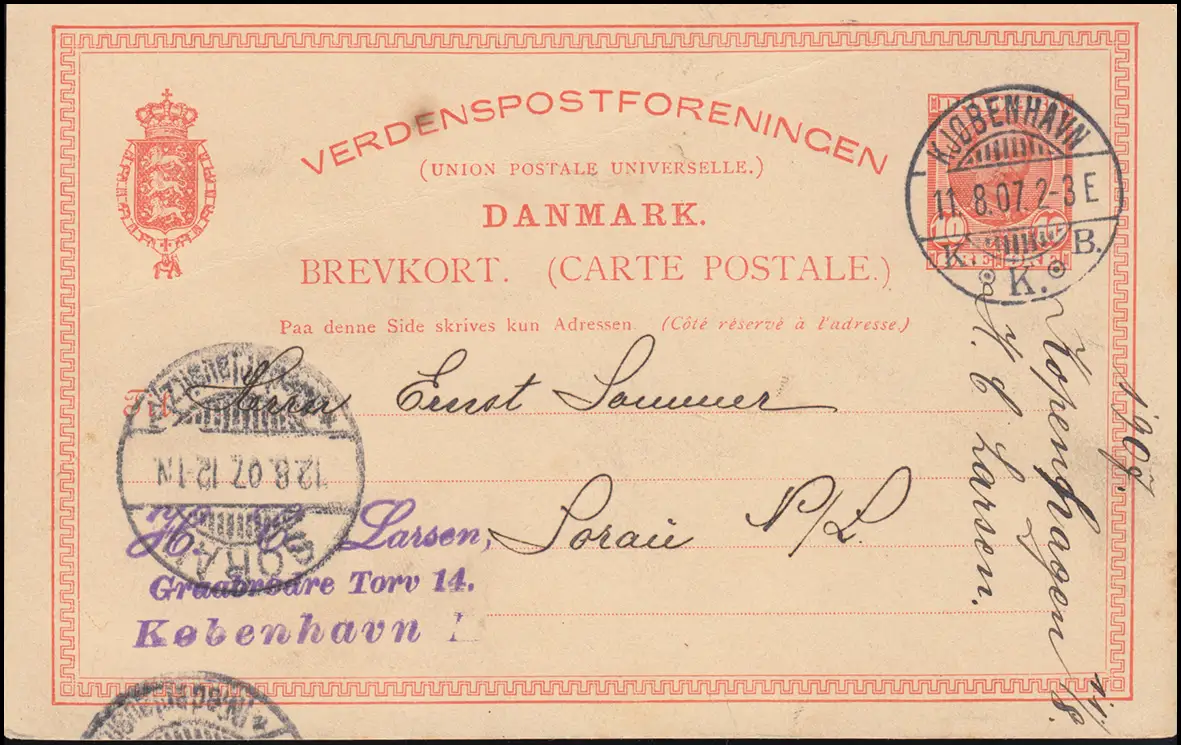 VERDENSPOSTFORENINGEN
(UNION POSTALE UNIVERSELLE.)
DANMARK.
BREVKORT. (CARTE POSTALE.)
Paa denne Side skrives kun Adressen. (Côté réservé à l'adresse.)
KJØBENHAVN
11.8.07. 2-3 E
K. B.
K.
10 10
Til
Herrn Ernst Sommer
Sorau N/L.
12.8.07. 12-1N.
SORAU
H. C. Larsen,
Graabrødre Torv 14.
København
Kopenhagen 11/8.
1907.
H. C. Larsen.
(Niederlausitz)